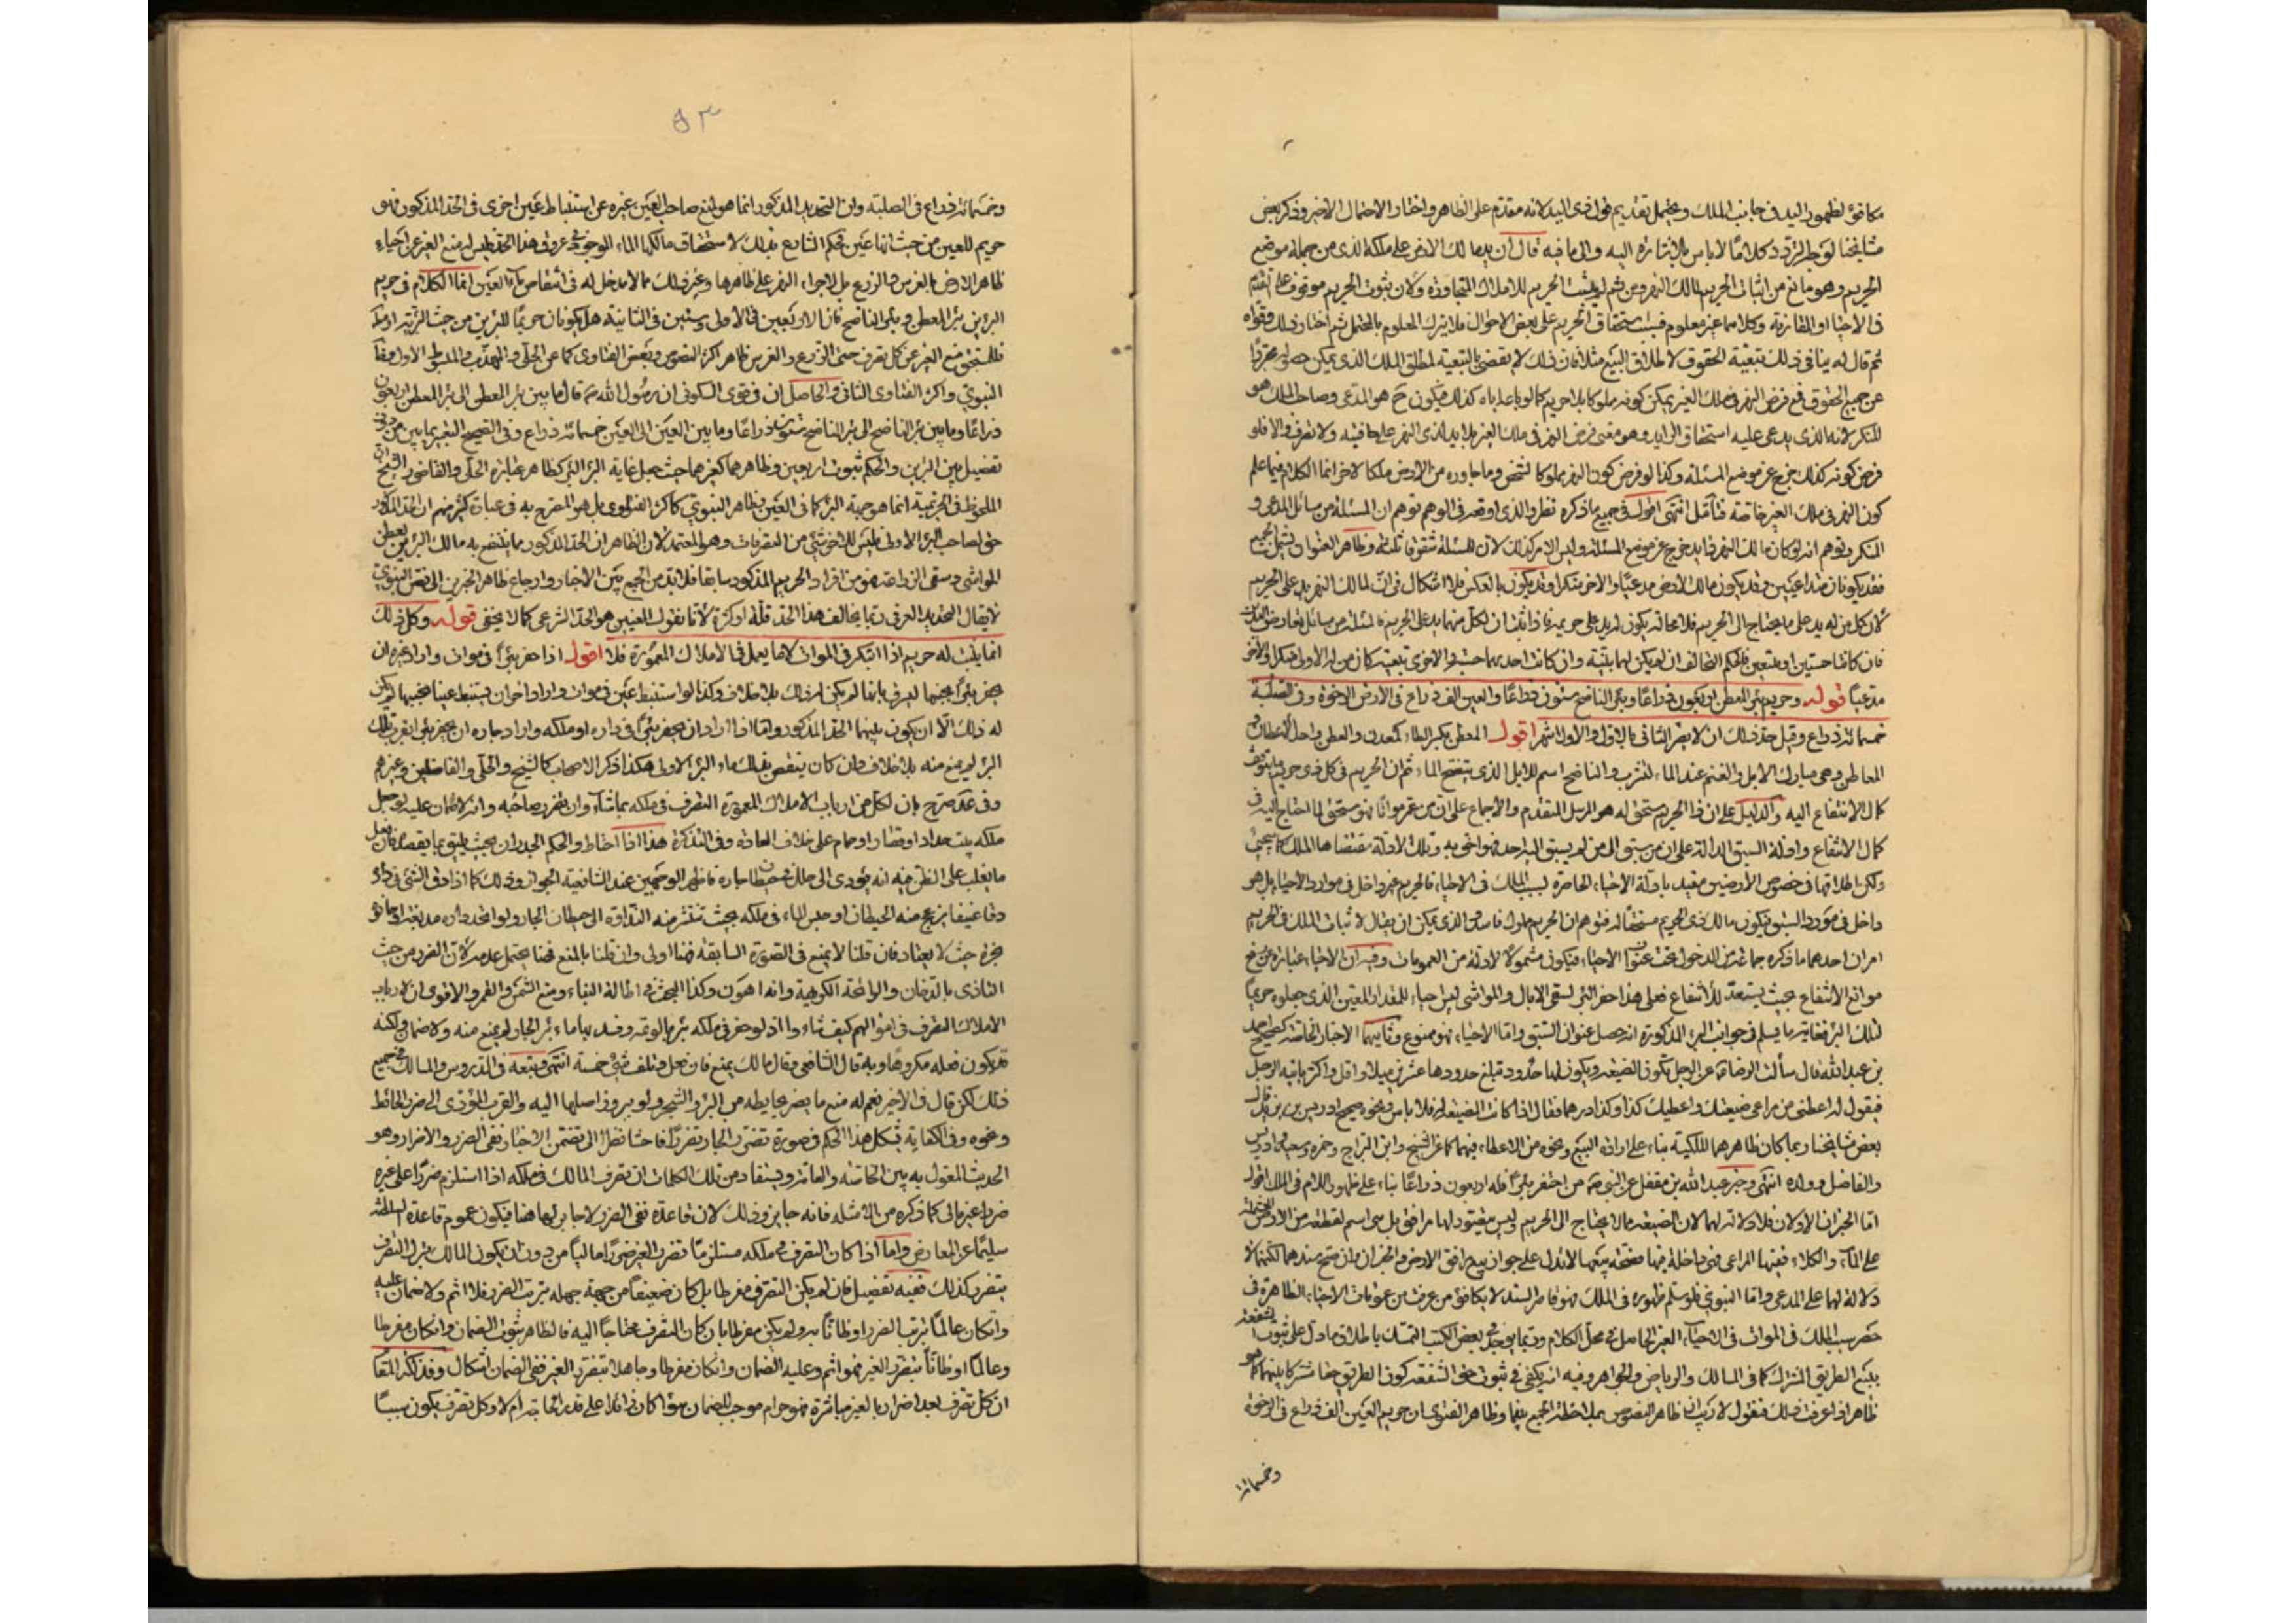 مكافئ لظهور اليد في جانب الملك ويحتمل تقديم قول ذي اليد لانه مقدم على الظاهر واختار الاحتمال الاخير وذكر بعض
مشايخنا لوجه التردد كلاما لا باس بالاشارة اليه والى ما فيه قال ان يد مالك الارض على ملكه الذي من جملة موضع
الحريم وهو مانع من اثبات الحريم لمالك النهر ومن ثم لم يثبت الحريم للاملاك المتجاورة ولان ثبوت الحريم موقوف على تقدم
في الاحيا او المقارنة وكلاهما غير معلوم فسبب استحقاق الحريم على بعض الاحوال فلا يترك المعلوم بالمحتمل ثم اختار ذلك وقواه
ثم قال له ينافي ذلك تبعية الحقوق لاطلاق البيع مثلا فان ذلك لا يقضي بالتبعية لمطلق الملك الذي يمكن حصوله مجردا
عن جميع الحقوق فمع فرض النهر في ملك الغير يمكن كونه مملوكا بلا حريم كما لو باعه اياه كذلك فيكون ح هو المدعي وصاحب الملك هو
المنكر لانه الذي يدعى عليه استحقاق الزايد وهو معنى فرض النهر في ملك الغير بلا يد لذي النهر على حافتيه ولا تصرف والا فلو
فرض كونه كذلك خرج عن موضع المسئلة وكذا لو فرض كون النهر مملوكا لشخص وما جاوره من الارض ملكا لاخر انما الكلام فيما علم
كون النهر في ملك الغير خاصة فتأمل انتهى اقول في جميع ما ذكره نظر والذي اوقعه في الوهم توهم ان المسئلة من مسائل المدعي و
المنكر وتوهم انه لو كان مالك النهر ذا يد خرج عن موضع المسئلة وليس الامر كذلك لان للمسئلة شقوقا ثلثة وظاهر العنوان يشمل الجميع
فقد يكونان متداعيين وقد يكون مالك الارض مدعيا والاخر منكرا وقد يكون بالعكس بلا اشكال في ان لمالك النهر يد على الحريم
لان كل من له يد على ما يحتاج الى الحريم فلا محالة يكون له يد على حريمه فاذا ثبت ان لكل منهما يد على الحريم فالمسئلة من مسائل تعارض اليدين
فان كانتا حسيتين او تبعيتين فالحكم التحالف ان لم يكن لهما بينة وان كانت احديهما حسية والاخرى تبعية كان من له الاولى منكرا والاخر
مدعيا قوله وحريم بئر المعطن اربعون ذراعا وبئر الناضح ستون ذراعا والعين الف ذراع في الارض الرخوة وفي الصلبة
خمسمائة ذراع وقيل حد ذلك ان لا يضر الثاني بالاول والاول اشهر اقول المعطن بكسر الطاء كمعدن والعطن واحد الاعطان و
المعاطن وهي مبارك الابل والغنم عند الماء لتشرب والناضح اسم للابل الذي يستقى الماء ثم ان الحريم في كل ذي حريم ما يتوقف
كمال الانتفاع اليه والدليل على ان ذا الحريم يستحق له هو المرسل المتقدم والاجماع على ان من عمر مواتا فهو يستحق لما احتاج اليه في
كمال الانتفاع وادلة السبق الدالة على ان من سبق الى من لم يسبق اليه احد فهو احق به وتلك الادلة مقتضاها الملك كما سيجئ
ولكن اطلاقها في خصوص الارضين مقيد بادلة الاحياء الحاصرة لسبب الملك في الاحياء فالحريم غير داخل في موارد الاحياء بل هو
داخل في مورد السبق فيكون مالك ذي الحريم مستحقا له فتوهم ان الحريم مملوك فاسد والذي يمكن ان يقال لاثبات الملك في الحريم
امران احدهما ما ذكره جماعة من الدخول تحت عنوان الاحياء فيكون مشمولا لادلته من العمومات وفيه ان الاحياء عبارة عن رفع
موانع الانتفاع بحيث يستعد للانتفاع فعلى هذا حفر البئر لسقي الابال والمواشي ليس احياء للمقدار المعين الذي جعلوه حريما
لتلك البئر فغاية ما يسلم في جوانب البئر المذكورة انه حصل عنوان السبق واما الاحياء فهو ممنوع وثانيهما الاخبار الخاصة كصحيح احمد
بن عبد الله قال سألت الرضا عن الرجل تكون له الضيعة ويكون لها حدود تبلغ حدودها عشرين ميلا او اقل او اكثر ياتيه الرجل
فيقول له اعطني من مراعي ضيعتك واعطيك كذا وكذا درهما فقال اذا كانت الضيعة له فلا باس ونحوه صحيح ادريس بن زيد قال
بعض مشايخنا ربما كان ظاهرهما الملكية بناء على ارادة البيع ونحوه من الاعطاء فيهما كما عن الشيخ وابن البراج وحمزة وسعيد وادريس
والفاضل وولده انتهى وخبر عبد الله بن مغفل عن النبي ص من احتفر بئرا فله اربعون ذراعا بناء على ظهور اللام في الملك اقول
اما الخبران الاولان فلا دلالة لهما لان الضيعة مما لا يحتاج الى الحريم وليس مقيدا لها مرافق بل هي اسم لقطعة من الارض المشتملة
على الماء والكلاء ففيها المراعي فهي داخلة فيها فصحة بيعها لا تدل على جواز بيع مرافق الارض والخبران وان صح سندهما لكنهما لا
دلالة لهما على المدعى واما النبوي فلو سلم ظهوره في الملك فهو قاصر السند لا يكافئ من عرفت من عمومات الاحياء الظاهرة في
حصر سبب الملك في الموات في الاحياء الغير الحاصل في محل الكلام وربما يوجد في بعض الكتب التمسك باطلاق ما دل على ثبوت الشفعة
ببيع الطريق المشترك كما في المسالك والرياض والجواهر وفيه انه يكفي في ثبوت حق الشفعة كون الطريق حقا مشتركا بينهما كما هو
ظاهر اذا عرفت ذلك فنقول لا ريب ان ظاهر النصوص بملاحظة الجمع بينها وظاهر الفتوى ان حريم العين الف ذراع في الرخوة
وخمسمائة
٥٣
وخمسمائة ذراع في الصلبة وان التحديد المذكور انما هو لمنع صاحب العين غيره عن استنباط عين اخرى في الحد المذكور فهو
حريم للعين من حيث انها عين فحكم الشارع بذلك لاستحقاق مالكها الماء الموجود في عروق هذا الحد فليس له منع الغير عن احياء
ظاهر الارض بالغرس والزرع بل لاجراء النهر على ظاهرها وغير ذلك مما لا مدخل له في انتقاص ماء العين انما الكلام في حريم
البئرين بئر المعطن وبئر الناضح فان الاربعين في الاولى وستين في الثانية هل يكونان حريما للبئرين من حيث البئرية او
فله منع الغير عن كل تصرف حتى الزرع والغرس ظاهر اكثر النصوص وبعض الفتاوى كما عن الحلي والمهذب والمبسوط الاول وفاقا
النبوي واكثر الفتاوى الثاني والحاصل ان في قوي السكوني ان رسول الله ص قال ما بين بئر المعطن الى بئر المعطن اربعون
ذراعا وما بين بئر الناضح الى بئر الناضح ستون ذراعا وما بين العين الى العين خمسمائة ذراع وفي الصحيح التعبير بما بين من دون
تفصيل بين البئرين والحكم ثبوت اربعين وظاهرهما كغيرهما حيث جعل غاية البئر البئر كظاهر عبارة الحلي والقاضي والشيخ ان
الملحوظ في الحريمية انما هو جهة البئر كما في العين وظاهر النبوي كاكثر الفتاوى بل هو المصرح به في عبارة كثير منهم ان الحد المذكور
حق لصاحب البئر الاولى فليس للاخر شئ من التصرفات وهو المعتمد لان الظاهر ان الحد المذكور مما ينتفع به مالك البئرين لعطن
المواشي وسقي الزراعة فهو من افراد الحريم المذكور سابقا فلا بد من الجمع بين الاخبار وارجاع ظاهر الخبرين الى نص النبوي
لا يقال التحديد العرفي ربما يخالف هذا الحد قلة او كثرة لانا نقول المعين هو الحد الشرعي كما لا يخفى قوله وكل ذلك
انما يثبت له حريم اذا ابتكر في الموات لا ما يعمل في الاملاك المعمورة فلا اقول اذا حفر بئرا في موات واراد غيره ان
يحفر بئرا بجنبها ليسرق ماءها لم يكن له ذلك بلا خلاف وكذا لو استنبط عين في موات واراد اخر ان يستنبط عينا بجنبها لم يكن
له ذلك الا ان يكون بينهما الحد المذكور واما اذا اراد ان يحفر بئرا في داره او ملكه واراد جاره ان يحفر بئرا بقرب تلك
البئر لم يمنع منه بلا خلاف وان كان ينقص بذلك ماء البئر الاولى هكذا ذكر الاصحاب كالشيخ والحلي والفاضلين وغيرهم
وفي عد صرح بان لكل من ارباب الاملاك المعمورة التصرف في ملكه بما شاء وان تضرر صاحبه وانه لا ضمان عليه لو جعل
ملكه بيت حداد او قصار او حمام على خلاف العادة وفي التذكرة هذا اذا احتاط واحكم الجدران بحيث يليق بما يقصده فان فعل
ما يغلب على الظن منه انه يؤدي الى خلل في حيطان جاره فاظهر الوجهين عند الشافعية الجواز وذلك كما اذا دق الشئ في داره
دقا عنيفا ينزعج منه الحيطان او حبس الماء في ملكه بحيث تنتشر منه النداوة الى حيطان الجار ولو اتخذ داره مدبغة او حانوته
مخبزة حيث لا يعتاد فان قلنا لا يمنع في الصورة السابقة فهنا اولى وان قلنا بالمنع فهنا يحتمل عدمه لان الضرر من حيث
التاذي بالدخان والرائحة الكريهة وانه اهون وكذا البحث في اطالة البناء ومنع الشمس والقمر والاقوى ان لارباب
الاملاك التصرف في اموالهم كيف شاءوا اذ لو حفر في ملكه بئر بالوعة وفسد بها ماء بئر الجار لم يمنع منه ولا ضمان ولكنه
قد يكون فعله مكروها وبه قال الشافعي وقال مالك يمنع فان فعل وتلف شئ ضمنه انتهى وتبعه في الدروس والمسالك في جميع
ذلك لكن قال في الاخير نعم له منع ما يضر بحايطه من البئر والشجر ولو ببروز اصلها اليه والضرب المؤدي الى ضرر الحائط
ونحوه وفي الكفاية يشكل هذا الحكم في صورة تضرر الجار تضررا فاحشا نظرا الى تضمن الاخبار نفي الضرر والاضرار وهو
الحديث المعول به بين الخاصة والعامة ويستفاد من تلك الكلمات ان تصرف المالك في ملكه اذا استلزم ضررا على غيره
ضررا غير مالي كما ذكره من الامثلة فانه جايز وذلك لان قاعدة نفي الضرر لا جابر لها هنا فيكون عموم قاعدة السلطنة
سليما عن المعارض واما اذا كان التصرف في ملكه مستلزما تضرر الغير ضررا ماليا من دون ان يكون المالك بترك التصرف
يتضرر كذلك ففيه تفصيل فان لم يكن التصرف مفرطا بل كان ضعيفا من جهة جهله بترتب الضرر فلا اثم ولا ضمان عليه
وان كان عالما بترتب الضرر او ظانا به ولم يكن مفرطا بان كان المتصرف محتاجا اليه فالظاهر ثبوت الضمان وان كان مفرطا
وعالما او ظانا بتضرر الغير فهو اثم وعليه الضمان وان كان مفرطا وجاهلا بتضرر الغير ففي الضمان اشكال وقد ذكرنا
ان كل تصرف يعد اضرارا بالغير مباشرة فهو حرام موجب للضمان سواء كان زائدا على قدر الحاجة ام لا وكل تصرف يكون سببا